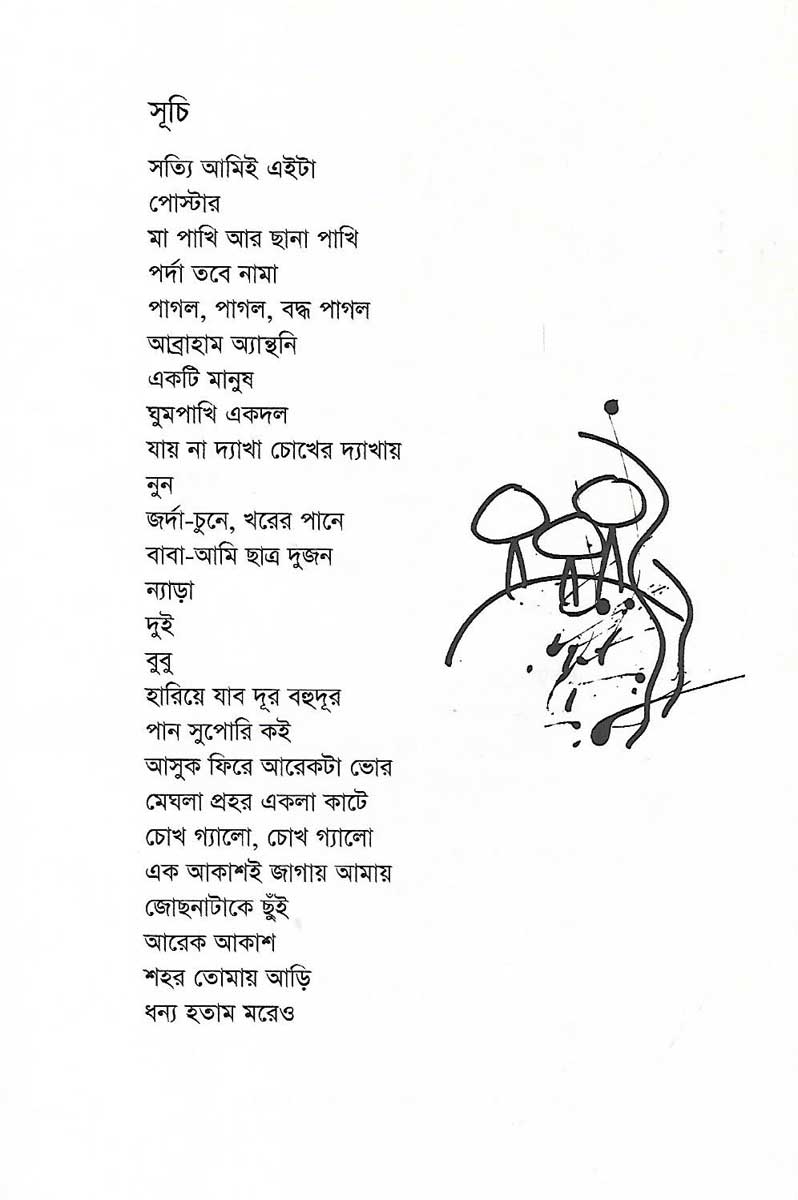 সূচি
সত্যি আমিই এইটা
পোস্টার
মা পাখি আর ছানা পাখি
পর্দা তবে নামা
পাগল, পাগল, বদ্ধ পাগল
আব্রাহাম অ্যান্থনি
একটি মানুষ
ঘুমপাখি একদল
যায় না দ্যাখা চোখের দ্যাখায়
নুন
জর্দা-চুনে, খরের পানে
বাবা-আমি ছাত্র দুজন
ন্যাড়া
দুই
বুবু
হারিয়ে যাব দূর বহুদূর
পান সুপোরি কই
আসুক ফিরে আরেকটা ভোর
মেঘলা প্রহর একলা কাটে
চোখ গ্যালো, চোখ গ্যালো
এক আকাশই জাগায় আমায়
জোছনাটাকে ছুঁই
আরেক আকাশ
শহর তোমায় আড়ি
ধন্য হতাম মরেও